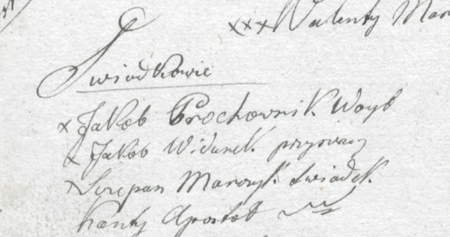 xxx Walenty Mar
Swiadkowie
x Jakob Prochownik Woyt
x Jakob Widurek przysiezny
x Szczepan Marczyk swiadek
Kanty Apostoł